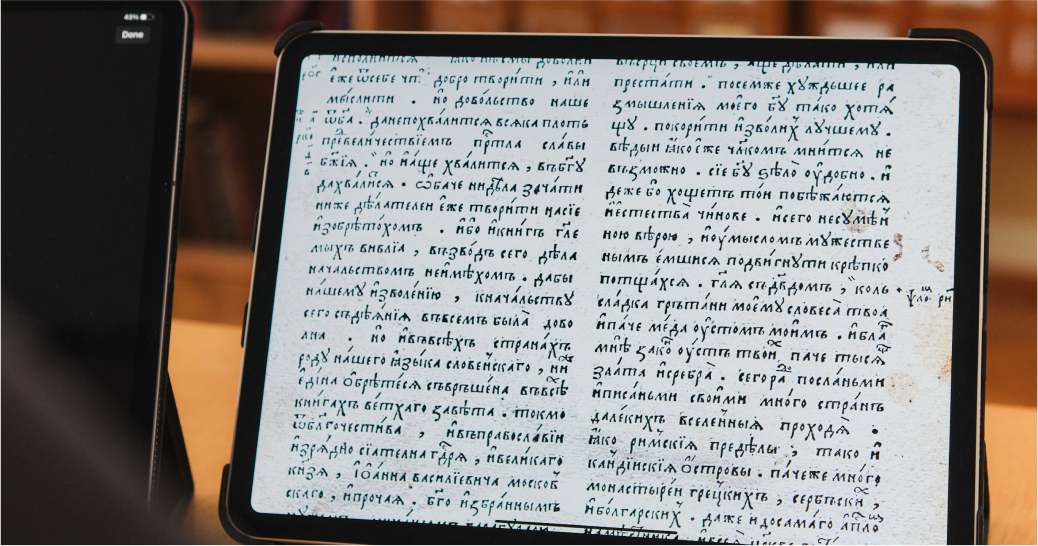 43%
Done
є҆же ѿсебе чт̑ добро̀ твори́ти , и҆́ли
мы́слити . но̀ дово́льство наше
ѿба҃ . данепохва́литсѧ всѧ́ка пло́ть
пⷬ҇твла сла́вы
бж҃їѧ . но̀ и҆́аще хва́литсѧ , въбз҃ѣ
дахва́литсѧ . ѻ҆ба́че
ни́же дѣ́лателен є҆́же твори́ти насїе
и҆зобрѣто́хомъ . и҆́бо и҆кни́гъ гл҃е
мыхъ ви́влїа , възво́дъ сего̀ дѣ́ла
нача́льствомъ неи҆мѣ́хомъ . дабы̀
на́шемꙋ и҆зволе́нїю , кнача́льствꙋ
сего̀ съдѣѧ́нїѧ въвсе́мъ была̀ дово
лна . но̀ и҆въвсѣ́хъ страна́хъ
ро́дꙋ на́шего ꙗ҆зы́ка слове́нскаго , ни
є҆ди́на ѻ҆брѣ́тесѧ съврьше́на въвсѣ́хъ
кни́гахъ ве́тхаго завѣ́та . то́кмо
ѿбл҃гочести́ва , и҆въправосла́вїи
и҆зрѧ́дно сїа́телна гдⷭ҇рѧ , и҆вели́каго
кнѧ́зѧ , і҆ѡа́нна васи́лїевича моско́в
скаго , и҆про́чаѧ . бг҃о и҆збра́ннымъ
преста́ти . посе́мже хꙋ́ждьшее ра
змышле́нїѧ моегѡ̀ бг҃ꙋ та́ко хотѧ́
щꙋ . покори́ти и҆зво́лихъ лꙋ́чшемꙋ .
вѣ́дыи ꙗ҆́ко є҆́же чл҃комъ мни́тсѧ не
възмо́жно . сїѐ бг҃ꙋ ѕѣло̀ ᲂу҆до́бно . и҆
де́же бо хо́щетъ то́и побѣжа́ютсѧ
и҆є҆стества̀ чи́нове . и҆сего̀ несꙋмѣ́н
ною вѣ́рою , и҆ᲂу҆́мысломъ мꙋ́жестве
нымъ є҆́мшисѧ подви́гнꙋти крѣ́пко
потща́хсѧ . гл҃ѧ съдв҃домъ , коль
сла́дка грьта́ни моемꙋ̀ словеса̀ твоѧ̀
и҆па́че ме́да ᲂу҆сто́мъ мои́мъ . и҆бл҃га
мнѣ̀ зако́нъ ᲂу҆́стъ твои́хъ , па́че ты́сѧщ
зла́та и҆сребра̀ . сегѡ̀ра́ди посла́ньми
и҆писа́ньми свои́ми мно́го стра́нъ
дале́кихъ вселе́нныѧ проходѧ̀ .
ꙗ҆́ко ри́мскїѧ предѣ́лы , та́ко и҆
канди́йскїѧ ѻ҆́стровы . па́чеже мно́го
монастыре́и гре́ческихъ , се́рбъскихъ ,
и҆болга́рскихъ . да́же и҆досама́го а҆пⷭ҇ло